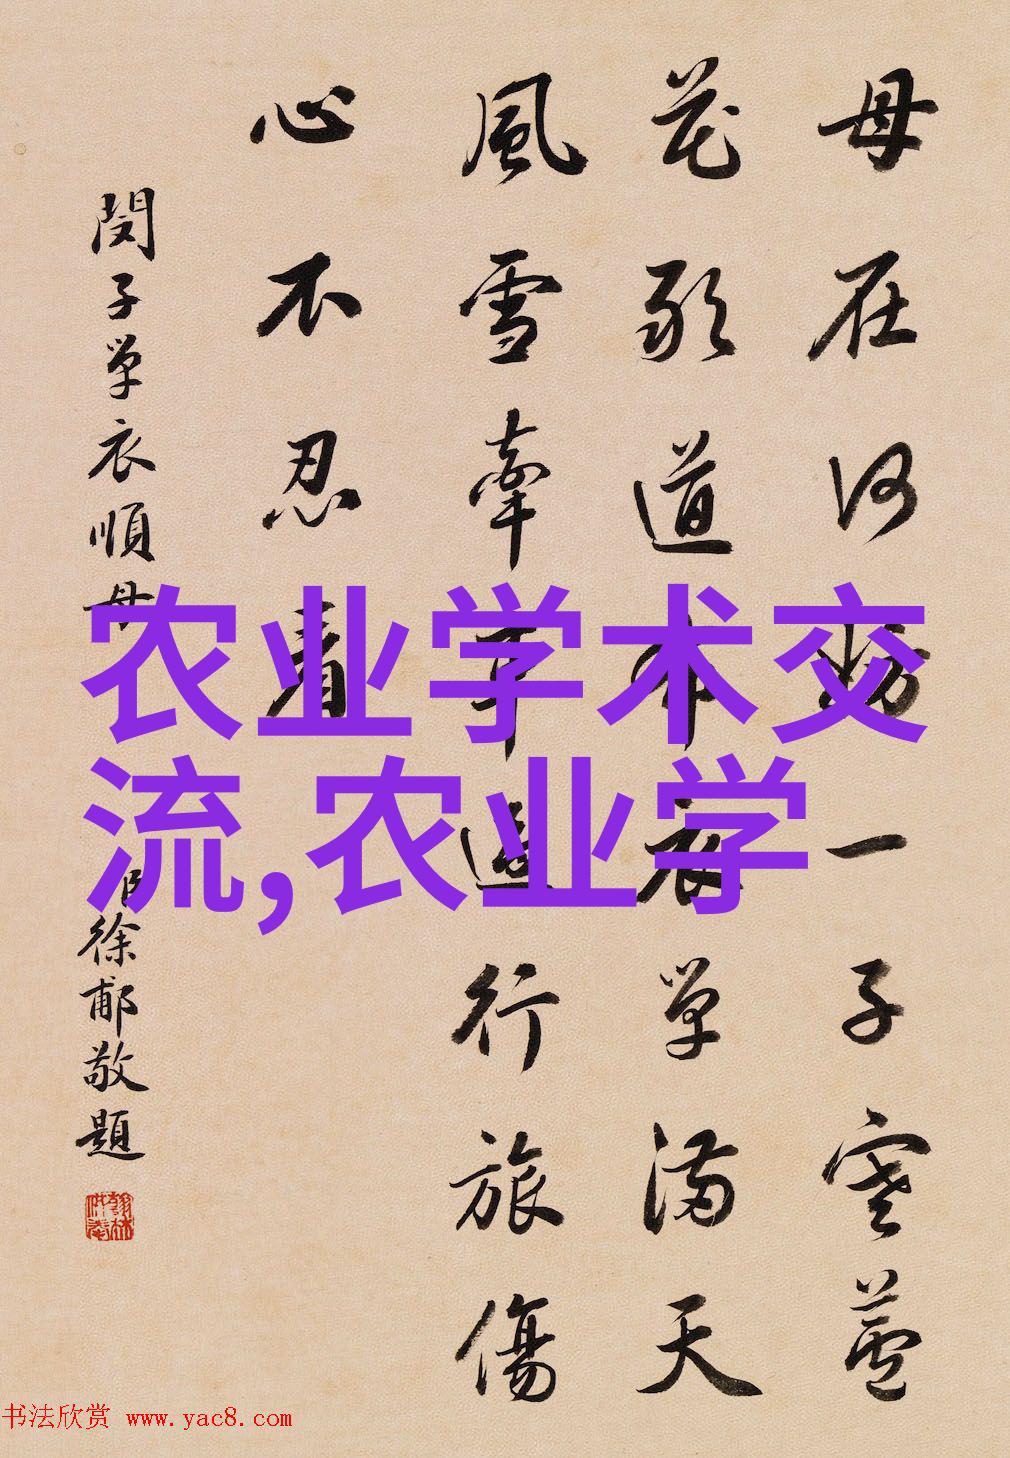 母在何妨一子寒蘆
花敢道衣單滿天
風雪牽車過行旅傷
心不忍看
閔子單衣順母
臣徐郙敬題
农业学术交
流,农业学
书法欣赏 www.yac8.com